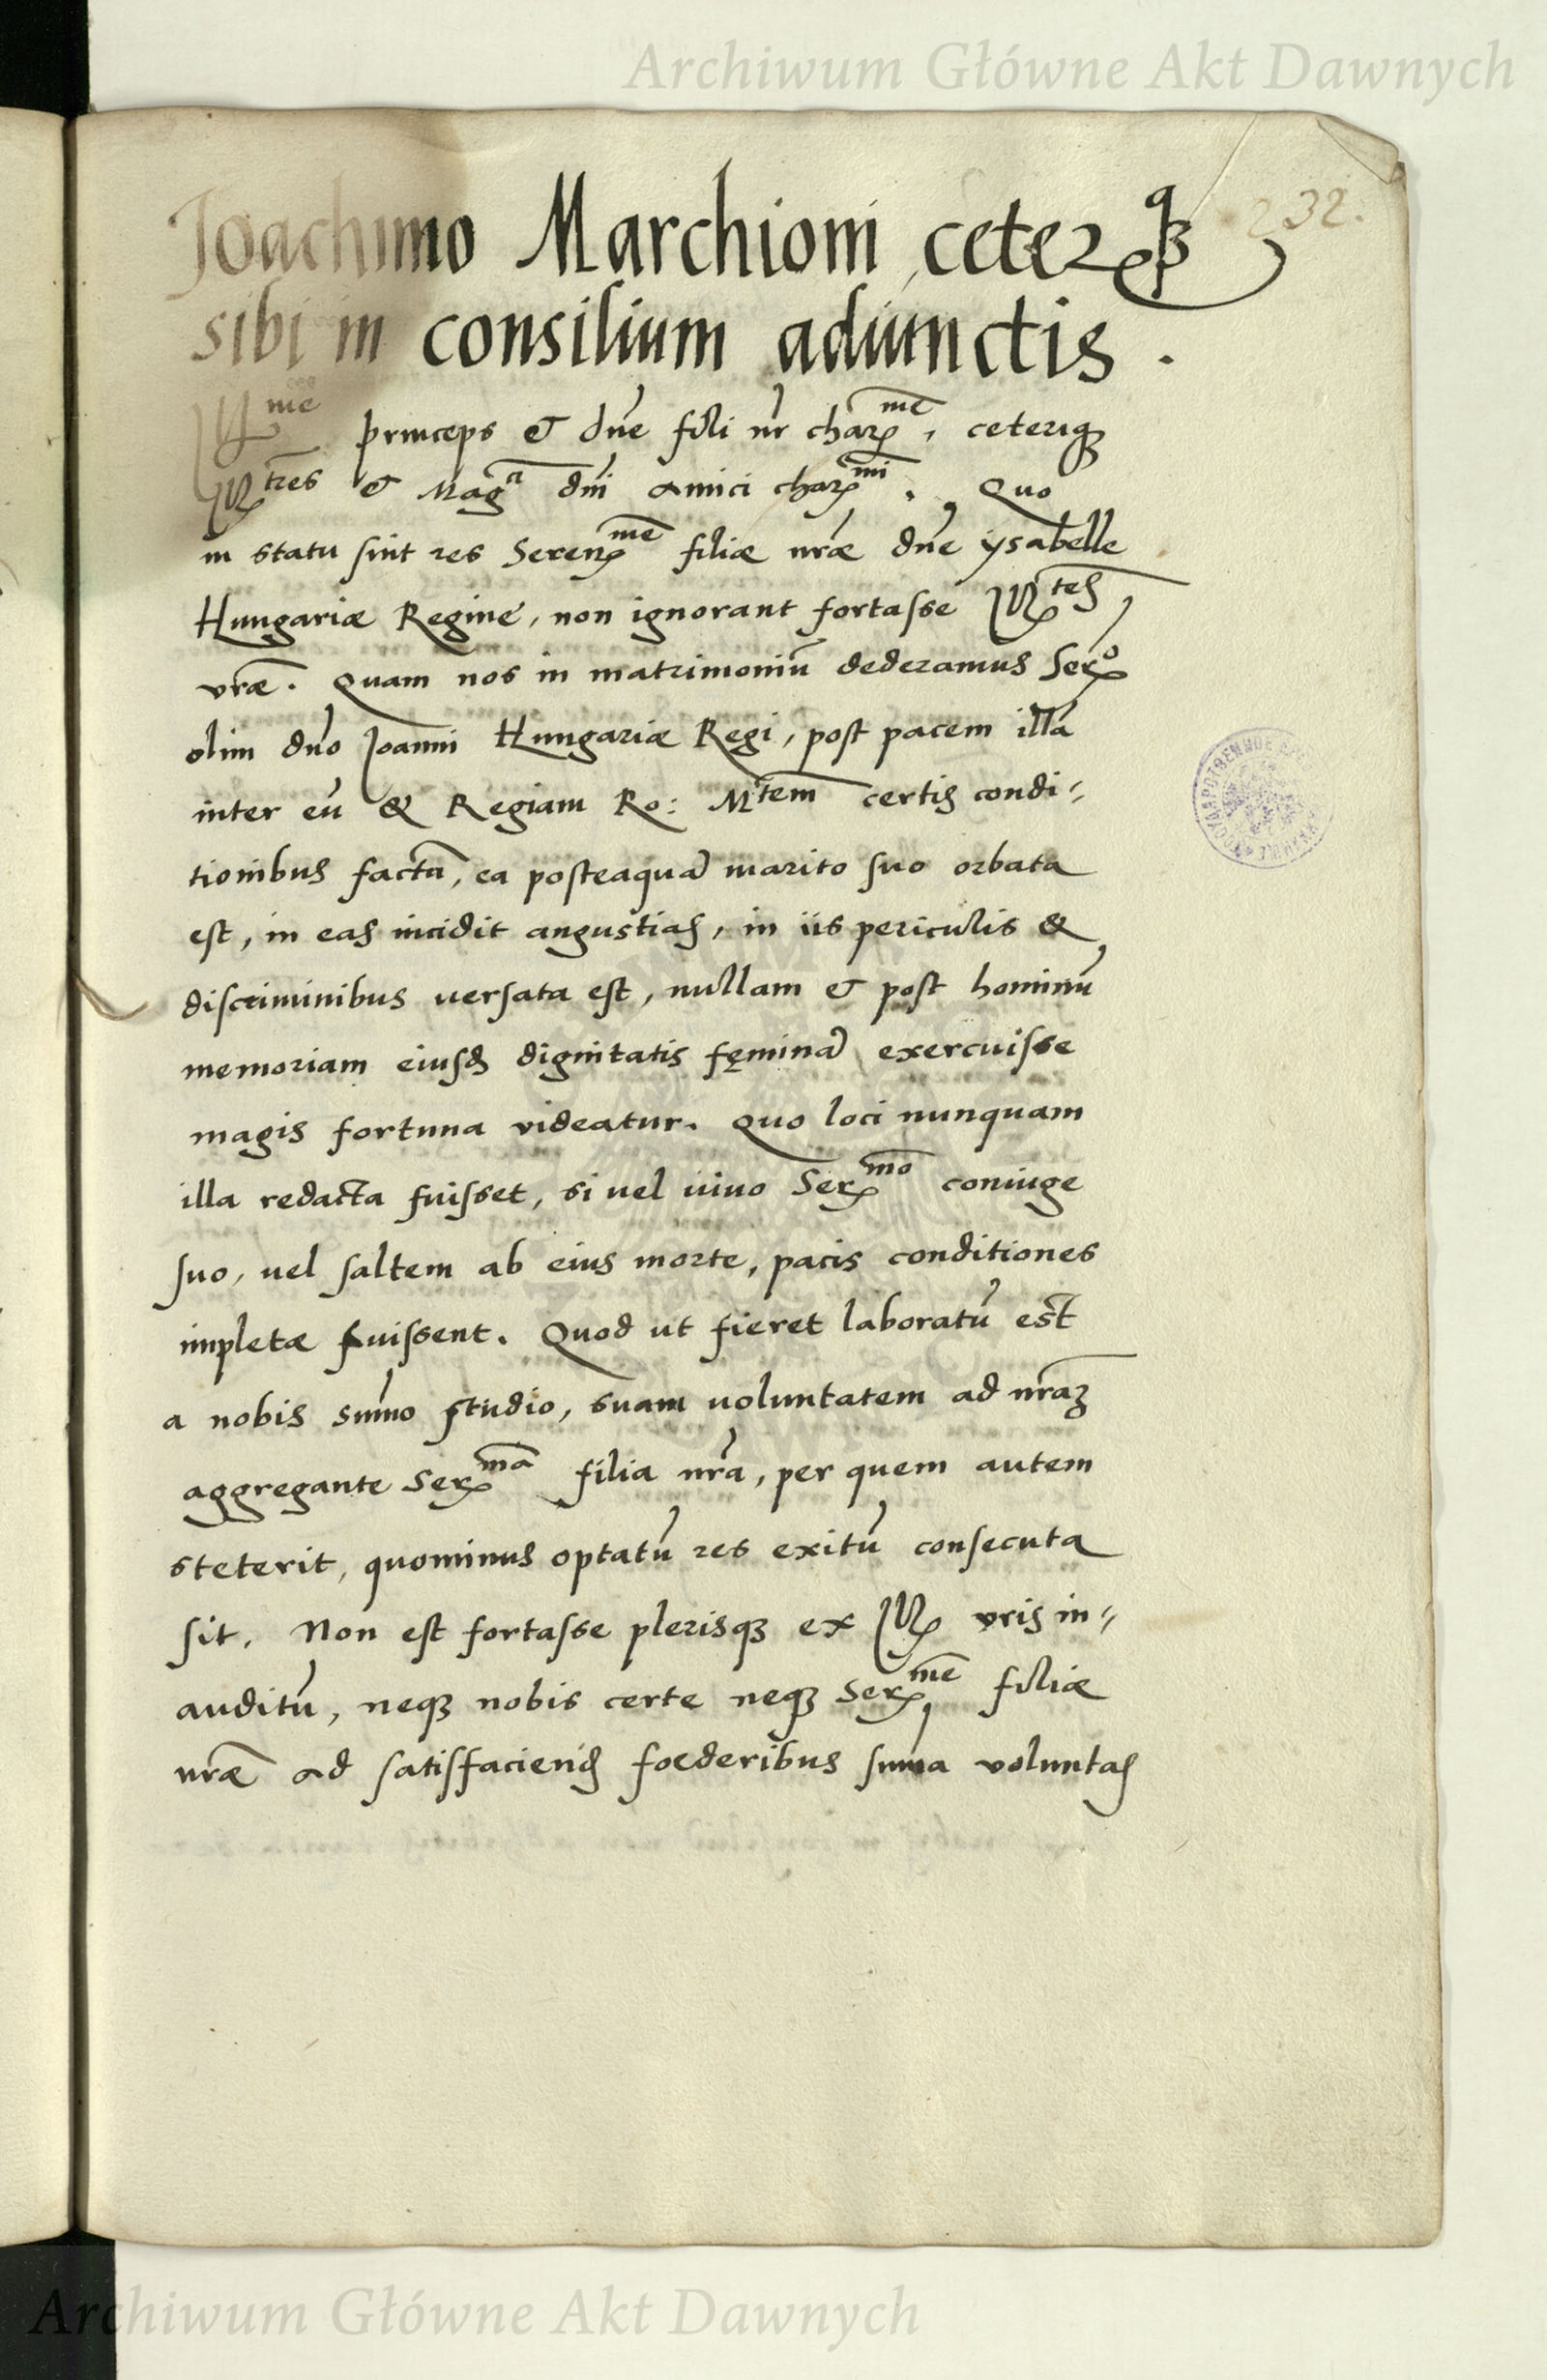 Archiwum Główne Akt Dawnych
232.
Joachimo Marchioni ceterisqꝫ
sibi in consilium adiunctis.
Illme princeps et dne fili nr charme, ceteriqꝫ
Illtres et Magci dni amici charmi. Quo
in statu sint res Serenme filiæ nræ dne ysabelle
Hungariæ Regine, non ignorant fortasse Illtes
vræ. Quam nos in matrimoniũ dederamus Sermo
olim dno Joanni Hungariæ Regi, post pacem illã
inter eũ & Regiam Ro: Mtem certis condi-
tionibus factã, ea posteaquã marito suo orbata
est, in eas incidit angustias, in iis periculis &
discriminibus uersata est, nullam et post hominũ
memoriam eiusd dignitatis fęminã exercuisse
magis fortuna videatur. Quo loci nunquam
illa redacta fuisset, si uel uiuo Sermo coniuge
suo, uel saltem ab eius morte, pacis conditiones
impletæ fuissent. Quod ut fieret laboratũ est
a nobis sũmo studio, suam uoluntatem ad nraꝫ
aggregante Serma filia nra, per quem autem
steterit, quominus optatũ res exitũ consecuta
sit. Non est fortasse plerisqꝫ ex Ill vris in-
auditũ, neqꝫ nobis certe neqꝫ Serme filiæ
nræ ad satisfaciend foederibus suma voluntas
Archiwum Główne Akt Dawnych